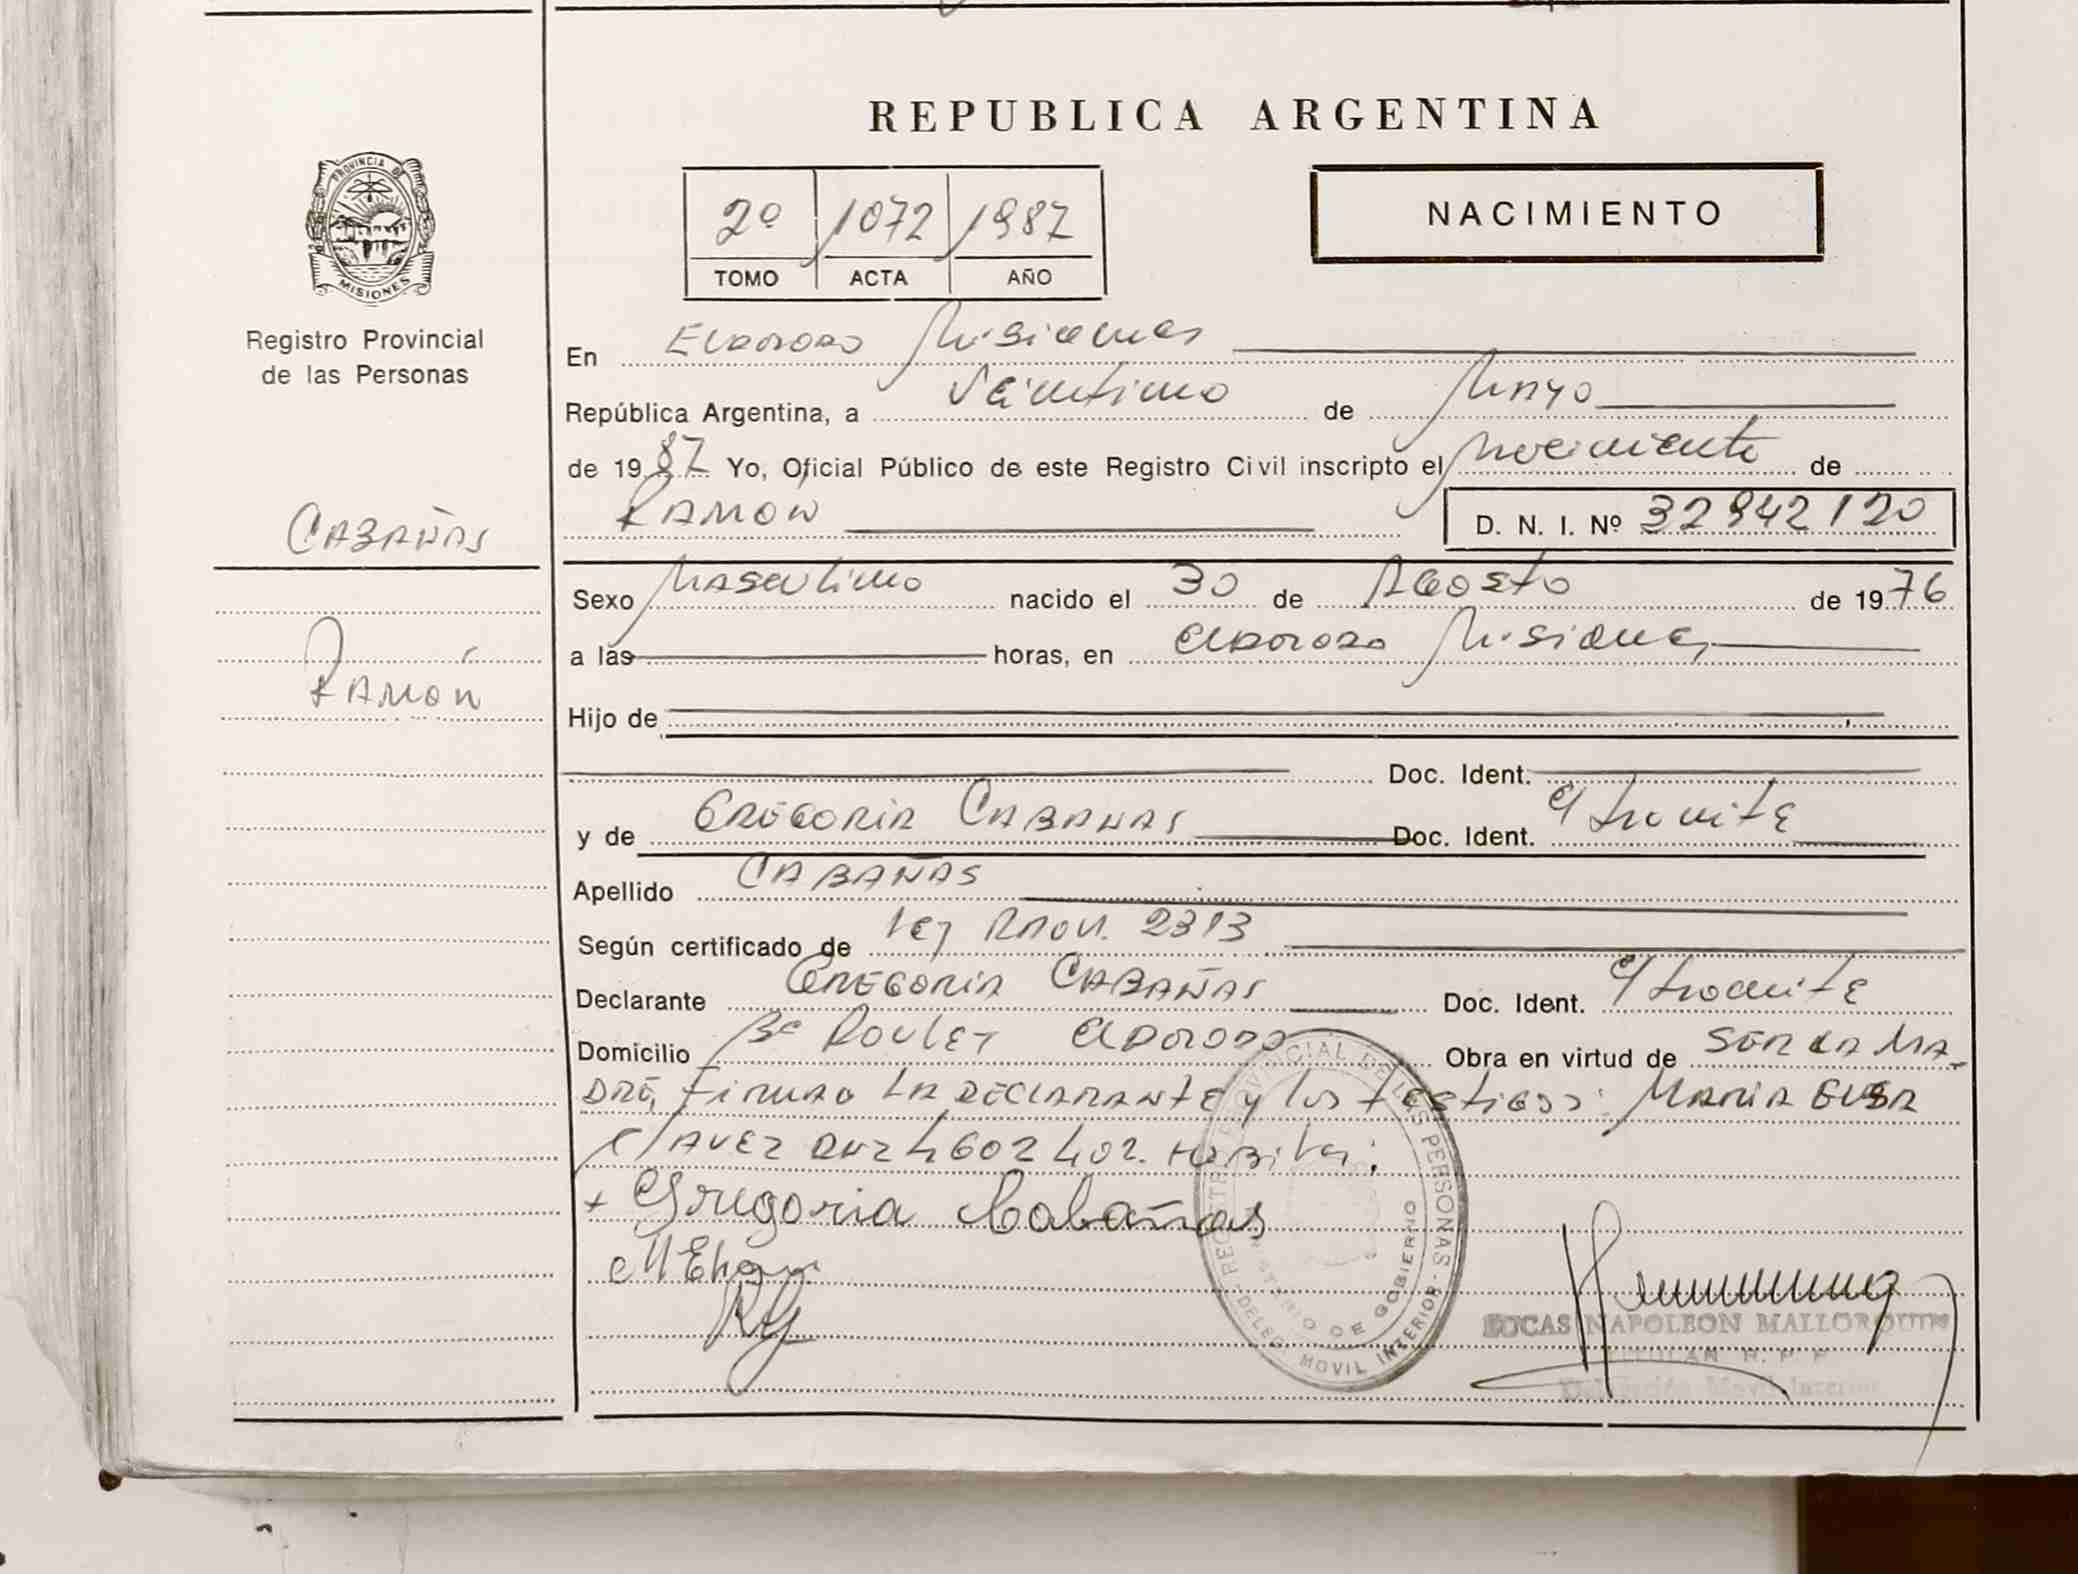 REPUBLICA ARGENTINA
PROVINCIA DE
MISIONES
Registro Provincial
de las Personas
2º 1072 1987
TOMO ACTA AÑO
NACIMIENTO
En Eldorado Misiones
República Argentina, a Veintiuno de Mayo
de 1987 Yo, Oficial Público de este Registro Civil inscripto el Nacimiento de
CABAÑAS
RAMON
D. N. I. Nº 32942120
RAMÓN
Sexo Masculino nacido el 30 de Agosto de 1976
a las horas, en Eldorado Misiones
Hijo de
Doc. Ident.
y de GREGORIA CABAÑAS Doc. Ident. e/tramite
Apellido CABAÑAS
Según certificado de Ley Prov. 2313
Declarante GREGORIA CABAÑAS Doc. Ident. e/tramite
Domicilio Bº Eldorado Obra en virtud de SER LA MA-
DRE, Firman LA DECLARANTE y los testigos: MARIA ELSA
4602402.
+ Gregoria Cabañas
REGISTRO PROVINCIAL DE LAS PERSONAS
MINISTERIO DE GOBIERNO
DELEG. MOVIL INTERIOR
LUCAS NAPOLEON MALLORQUIN
TITULAR R. P. P.
Delegación Movil Interior